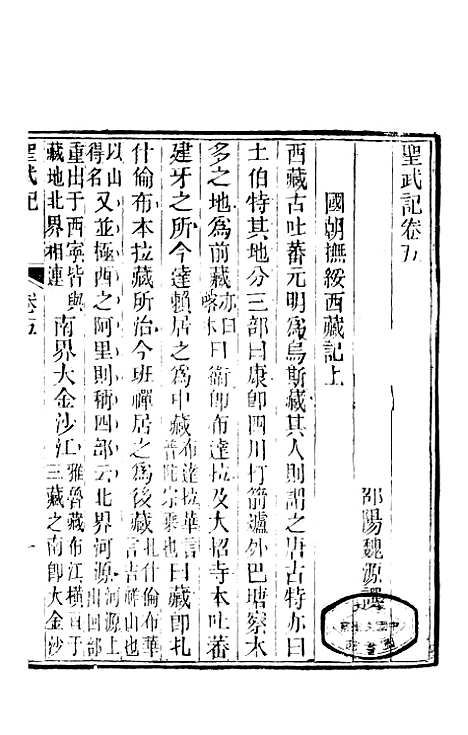 聖武記卷五
邵陽魏源
國朝撫綏西藏記上
西藏古吐蕃元明爲烏斯藏其人則謂之唐古特亦曰
土伯特其地分三部曰康卽四川打箭爐外巴塘察木
多之地爲前藏亦曰喀木曰衞卽布達拉及大招寺本吐蕃
建牙之所今達賴居之爲中藏布達拉華言普陀宗乘也曰藏卽札
什倫布本拉藏所治今班禪居之爲後藏札什倫布華言吉祥山也
以山得名又並極西之阿里則稱四部云北界河源河源上出回部
重出于西寧皆與藏地北界相連南界大金沙江雅魯藏布江橫亘于三藏之南卽大金沙
聖武記
卷五
一